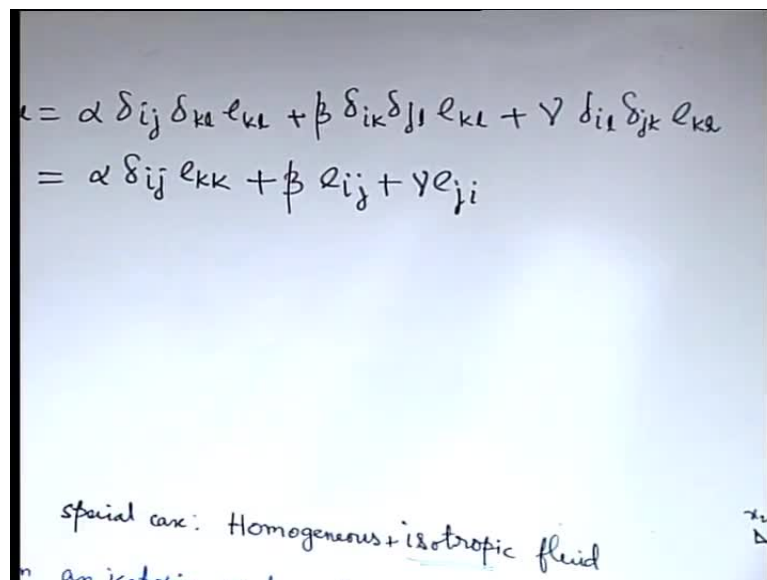 = α δij δkl ekl + β δik δjl ekl + γ δil δjk ekl
= α δij ekk + β eij + γ eji
special case: Homogeneous + isotropic fluid